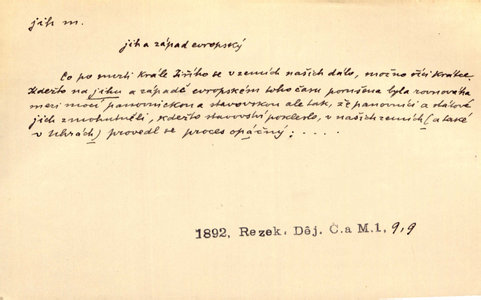 jih m.
jih a západ evropský
Co po smrti krále Jiřího se v zemích našich dálo, možno říci krátce.
Kdežto na jihu a západě evropském toho času porušena byla rovnováha
mezi mocí panovnickou a stavovskou ale tak, že panovníci a državy
jich zmohutněli, kdežto stavovství pokleslo, v našich zemích (a také
v Uhrách) provedl se proces opáčný: ....
1892, Rezek. Děj. Č.a M.1, 9,9